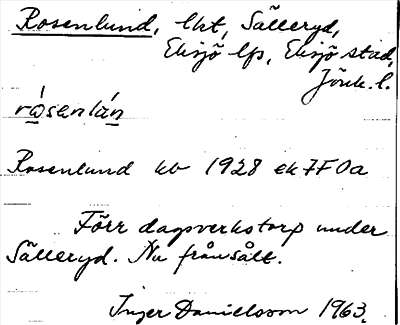 Rosenlund, lht, Sälleryd,
Eksjö lfs, Eksjö stad,
Jönk. l.
rósenlán
Rosenlund kb 1928 ek 7F0a
Förr dagsverkstorp under
Sälleryd. Nu frånsålt.
Inger Danielsson 1963.